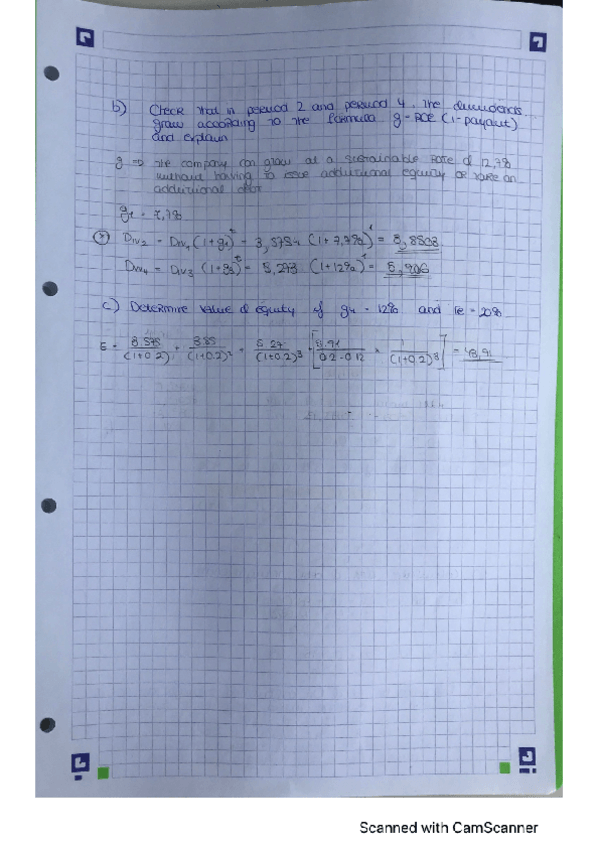 b) Check that in period 2 and period 4, the dividends
grow according to the formula g = ROE (1 - payout)
and explain
g => the company can grow at a sustainable rate of 12,7%
without having to issue additional equity or take on
additional debt
g₂ = 7,7%
Div₂ = Div₁ (1+g₂) = 3,5754 (1+7,7%)¹ = 3,8508
Div₄ = Div₃ (1+g₄) = 5,273 (1+12%)¹ = 5,906
c) Determine value of equity if g₄ = 12% and re = 20%
E = 3.575/(1+0.2) + 3.85/(1+0.2)² + 5.27/(1+0.2)³ + [5.91/0.2-0.12 × 1/(1+0.2)³] =
Scanned with CamScanner